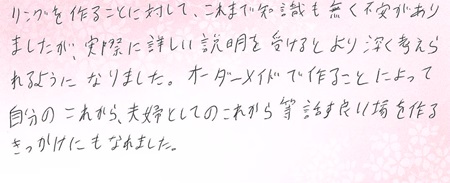 リングを作ることに対して、これまで知識も無く不安があり
ましたが、実際に詳しい説明を受けるとより深く考えら
れるようになりました。オーダーメイドで作ることによって
自分のこれから、夫婦としてのこれから等話す良い場を作る
きっかけにもなれました。